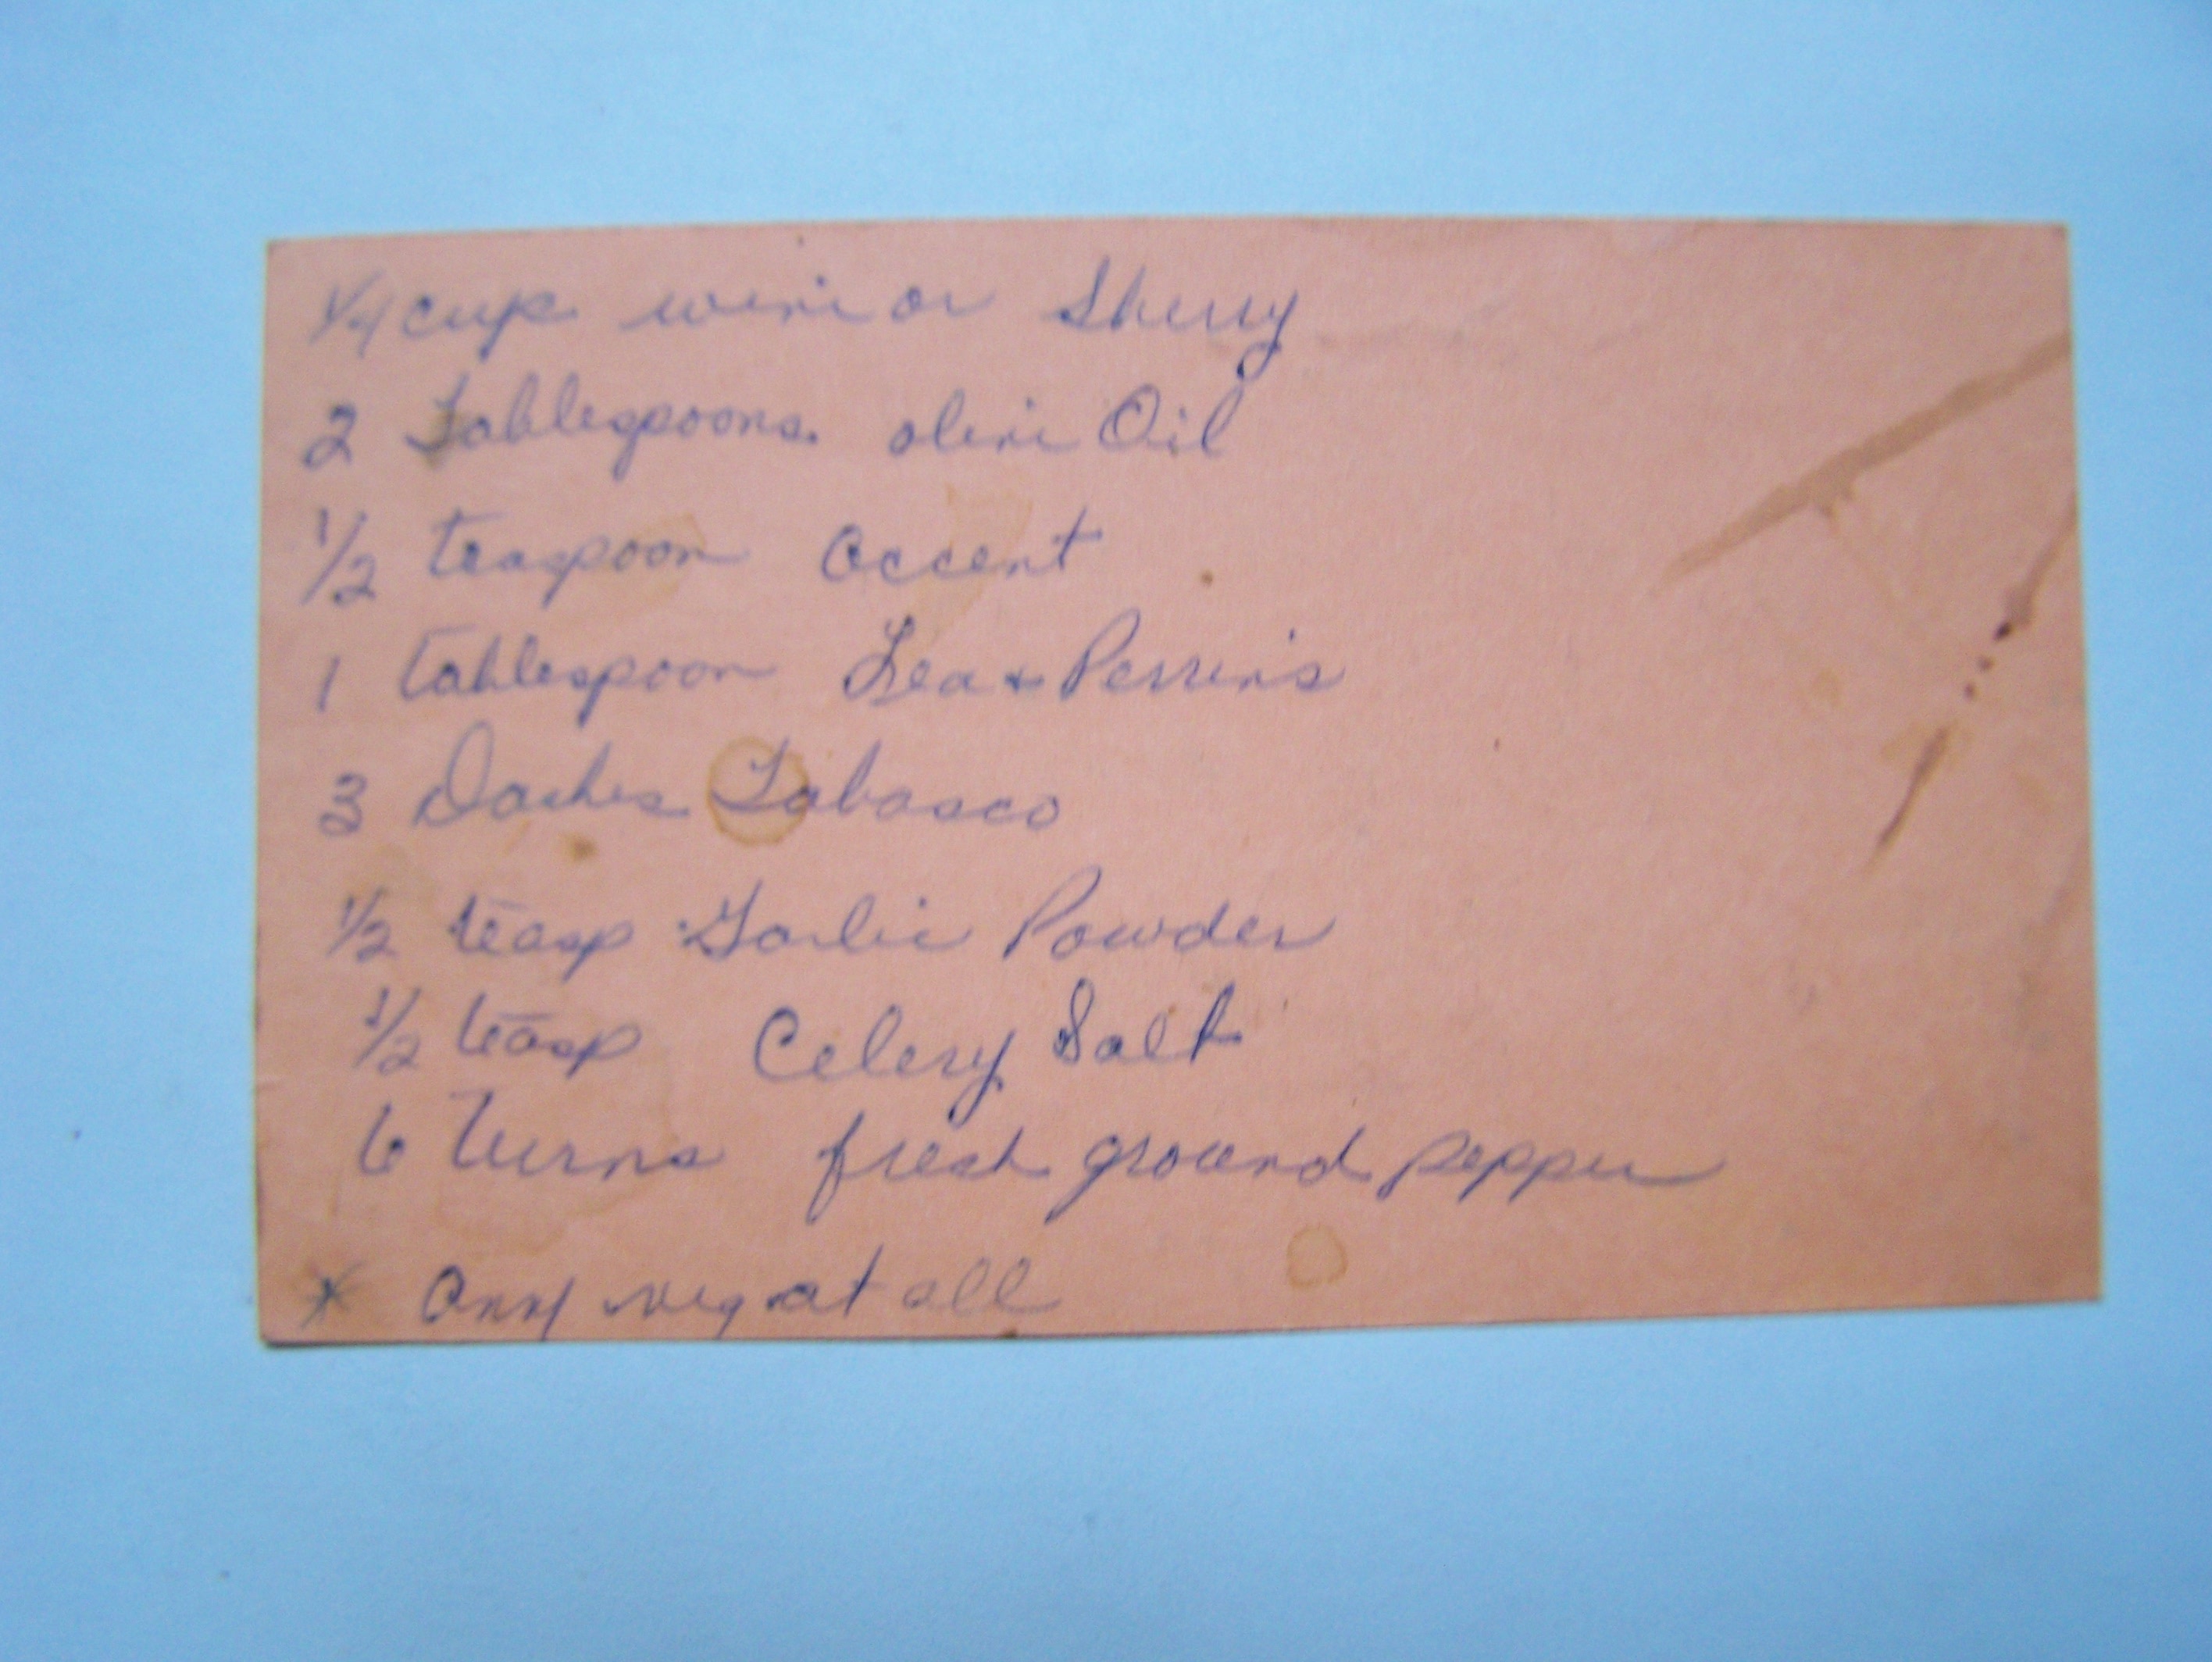 1/4 cup wine or Sherry
2 Tablespoons olive Oil
1/2 teaspoon accent
1 tablespoon Lea + Perrins
3 Dashes Tabasco
1/2 teasp Garlic Powder
1/2 teasp Celery Salt
6 Turns fresh ground pepper
* any veg at all